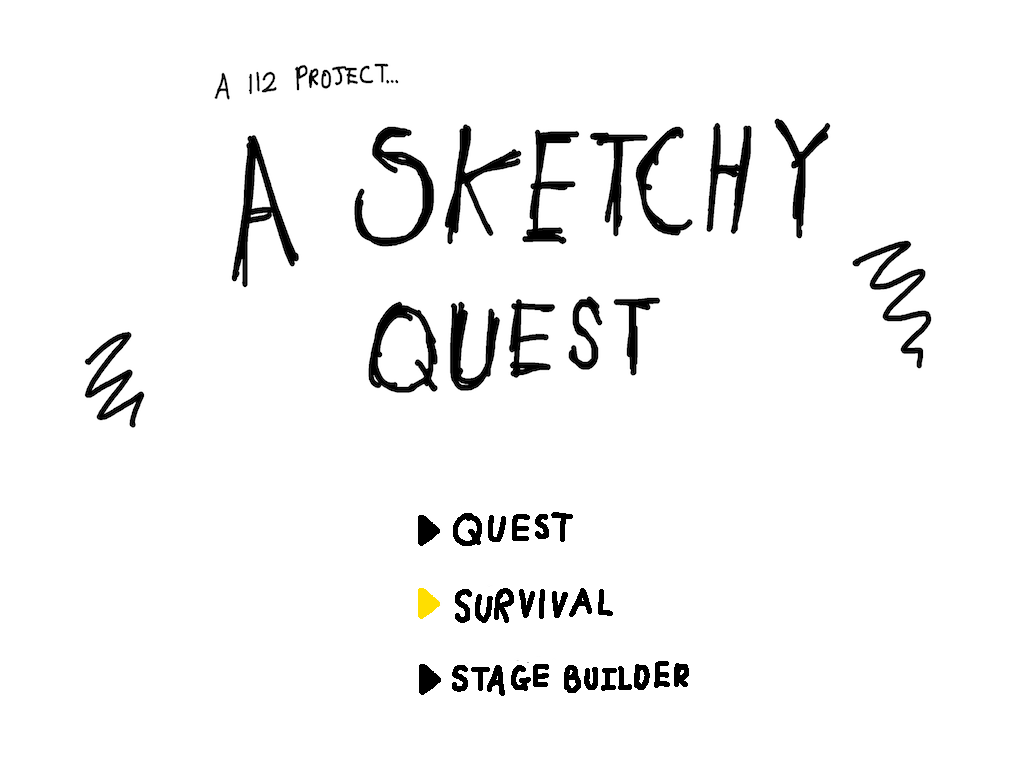 A 112 PROJECT...
A SKETCHY
QUEST
QUEST
SURVIVAL
STAGE BUILDER